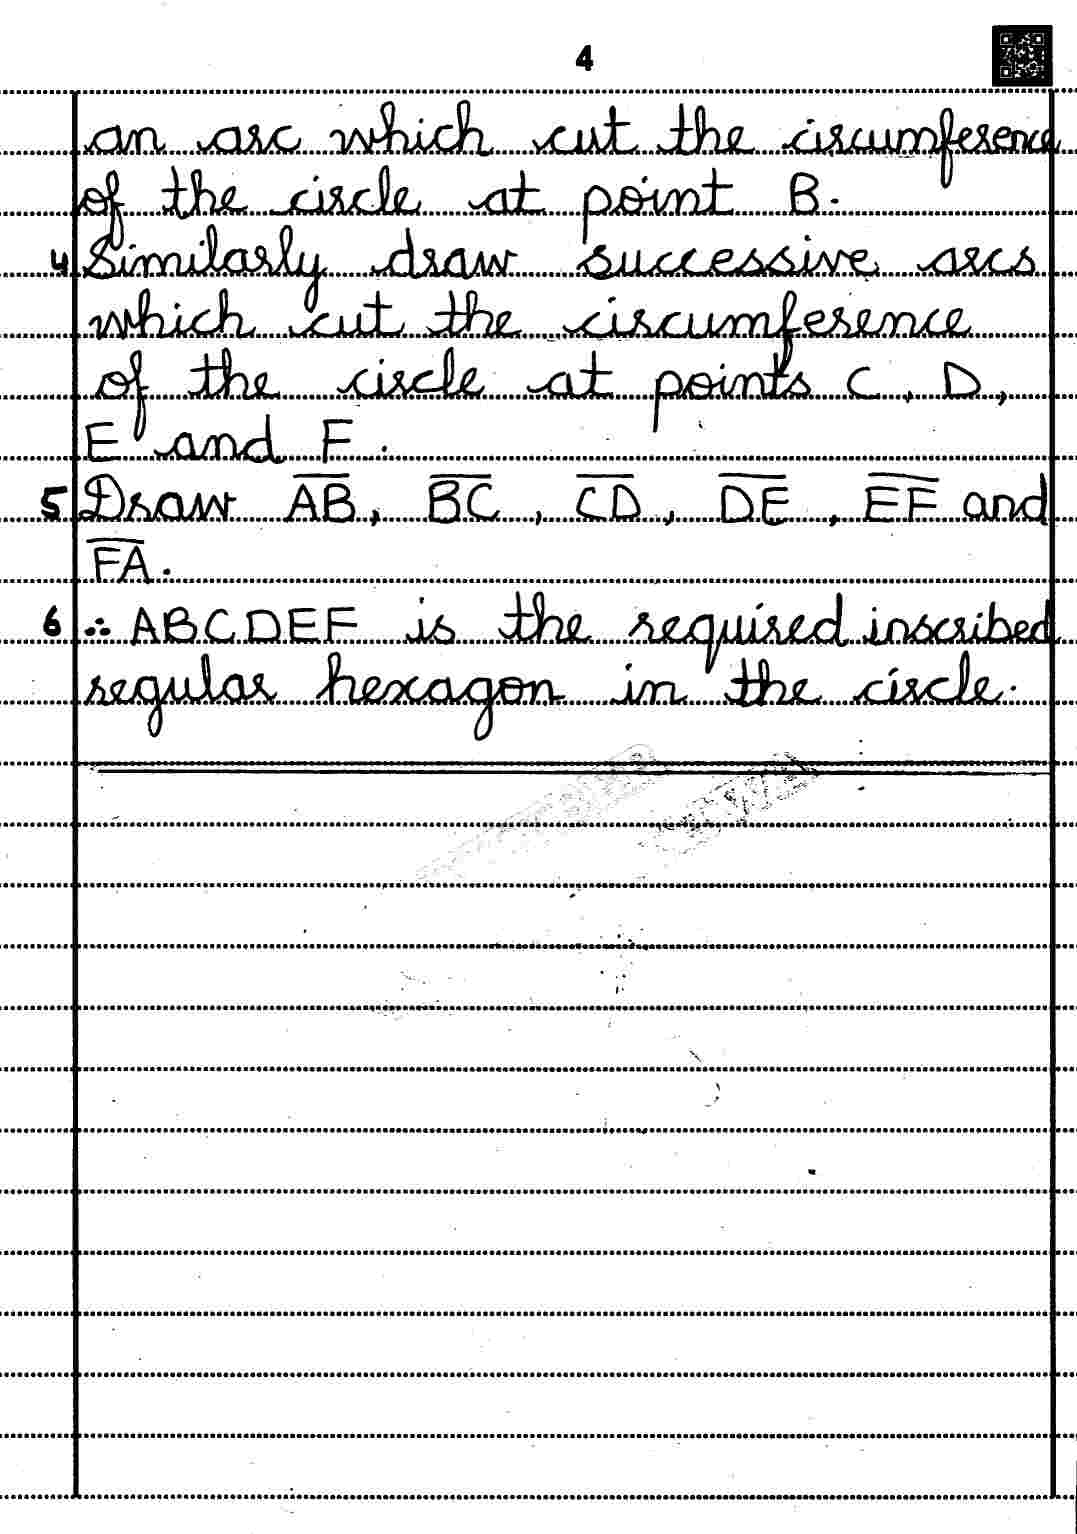 4
an arc which cut the circumference
of the circle at point B.
4 Similarly draw successive arcs
which cut the circumference
of the circle at points C, D,
E and F.
5 Draw A̅B̅, B̅C̅, C̅D̅, D̅E̅, E̅F̅ and
F̅A̅.
6 ∴ ABCDEF is the required inscribed
regular hexagon in the circle.